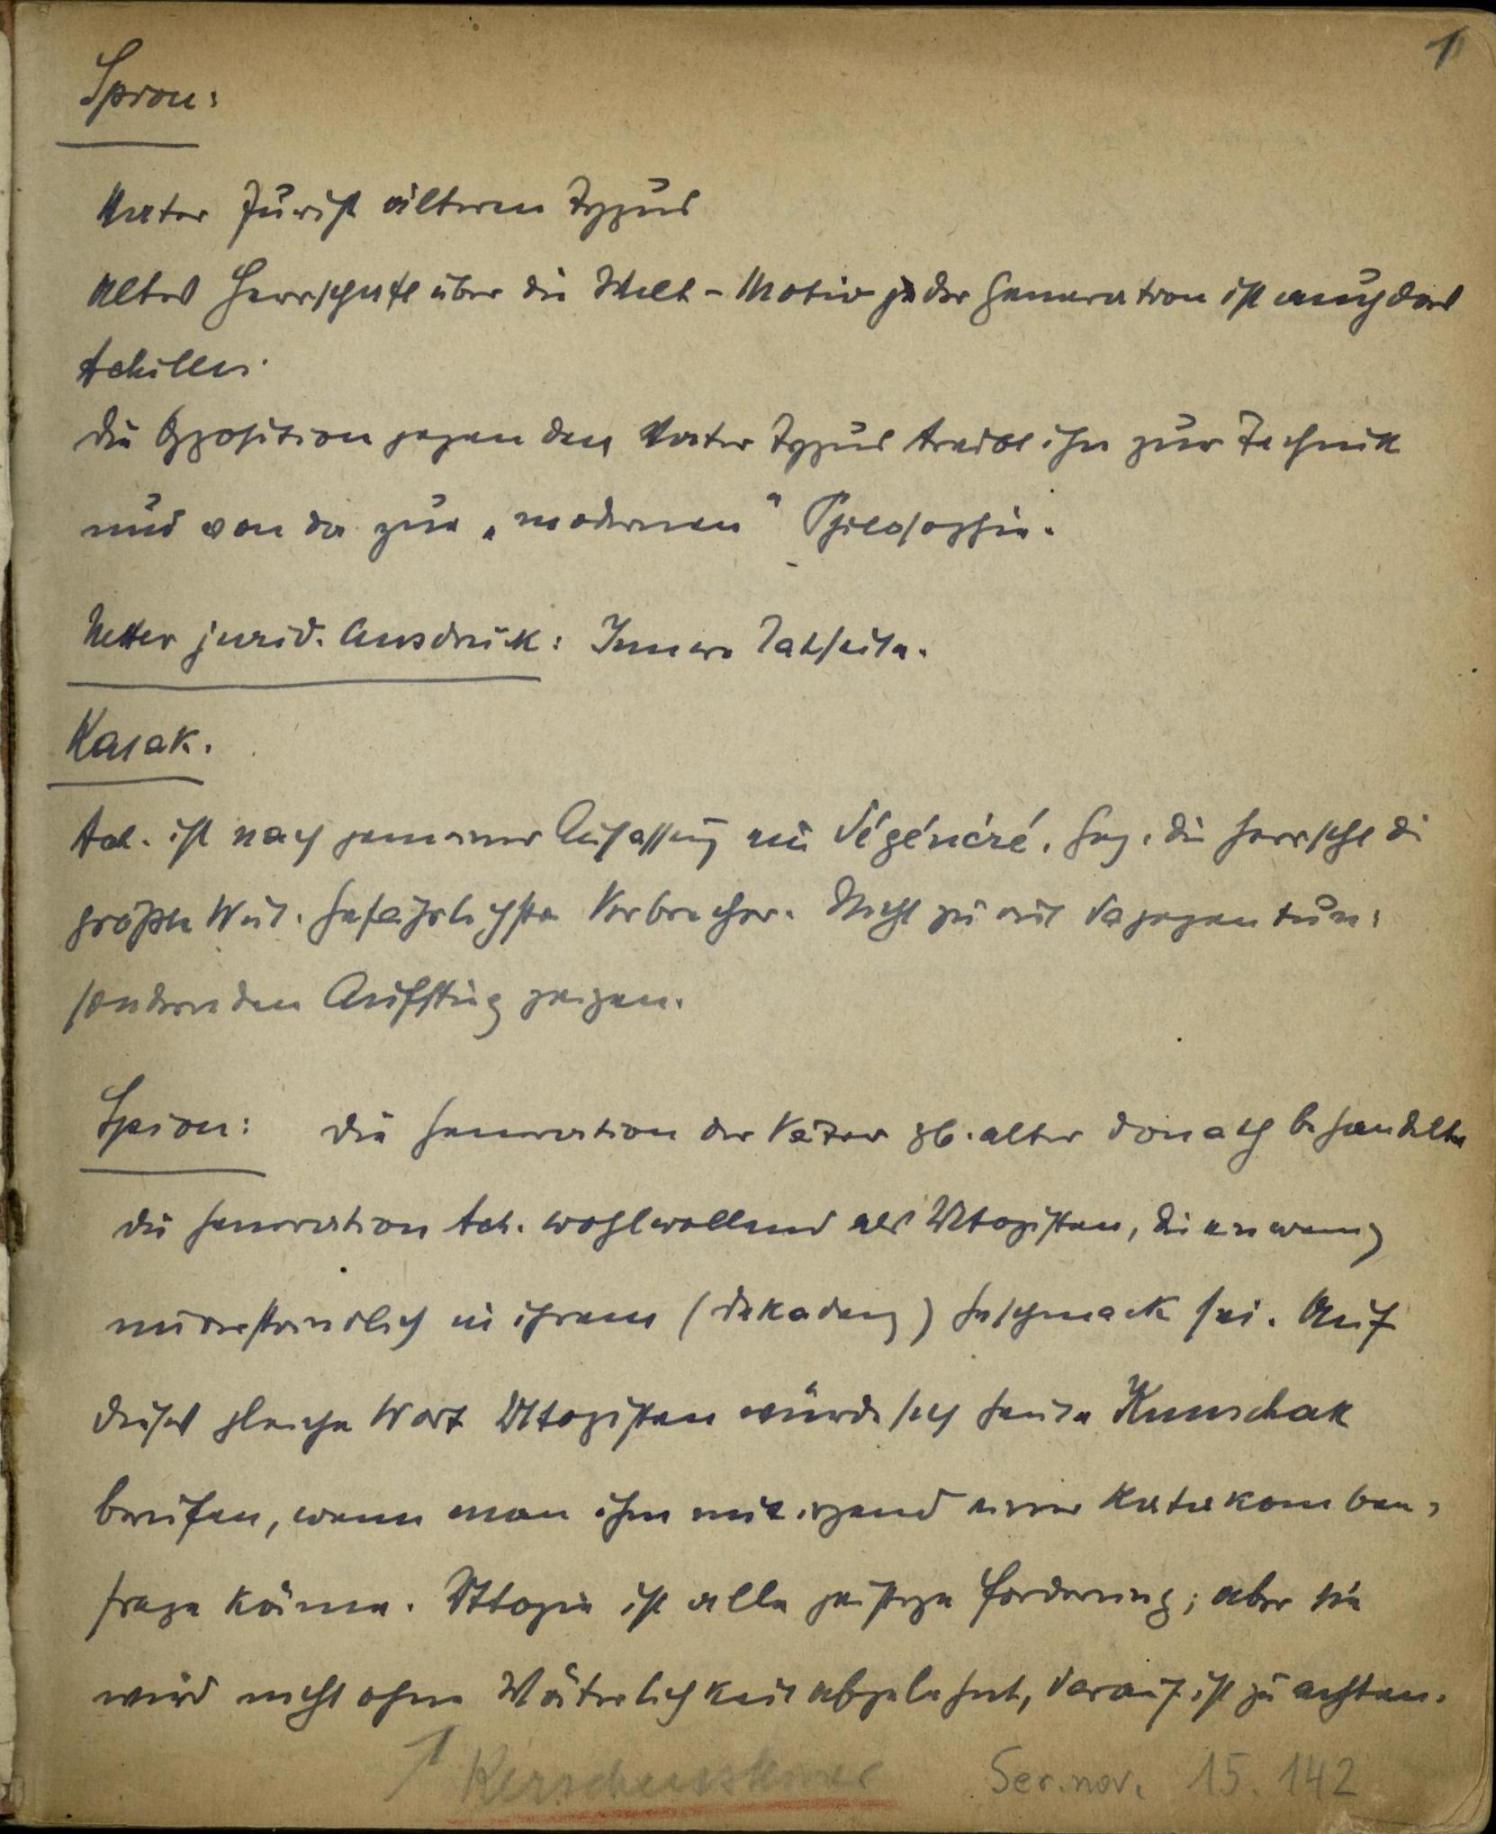 1
Spion:
Vater Jurist älteren Typus
Altes Herrschaft über die Welt-Motiv jeder Generation ist auch das
Achilles.
Die Opposition gegen den Vater Typus treibt ihn zur Technik
und von da zur „modernen" Philosophie.
Netter jurid. Ausdruck: Innere Tatseite.
Kasak.
Ach. ist nach gemeiner Auffassung ein dégénéré. Geg. die herrscht die
größte Wut. Gefährlichste Verbrecher. Nicht zu viel dagegen tun:
sondern den Aufstieg zeigen.
Spion: Die Generation der Väter zb. alter Donath behandelte
die Generation Ach. wohlwollend als Utopisten, die ein wenig
unverständlich in ihrem (dekadenz) Geschmack sei. Auf
dieses gleiche Wort Utopisten würde sich heute Kunschak
berufen, wenn man ihm mit irgend einer Katakomben-
frage käme. Utopie ist alle geistige Forderung; aber sie
wird nicht ohne Väterlichkeit abgelehnt, darauf ist zu achten.
↑ Kerschensteiner Ser. nov. 15.142